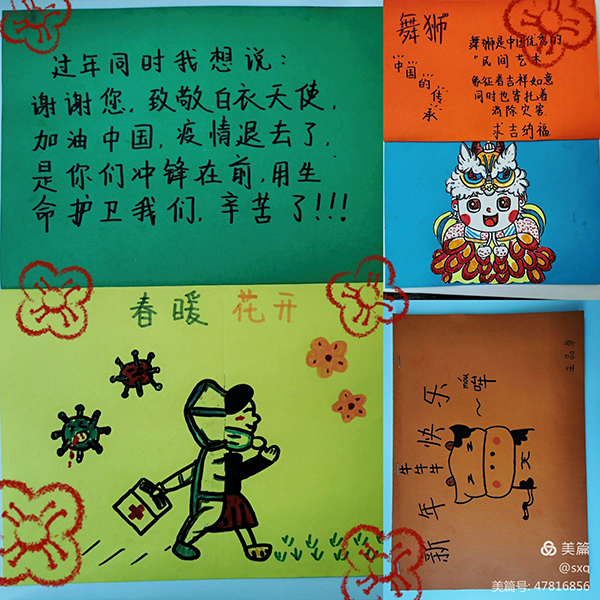 过年同时我想说:
谢谢您,致敬白衣天使,
加油中国,疫情退去了,
是你们冲锋在前,用生
命护卫我们,辛苦了!!!
舞狮
中国的传承
舞狮是中国优秀的
"民间艺术
象征着吉祥如意
同时也寄托着
消除灾害
求吉纳福
春暖花开
新年快乐
牛牛牛
哞~
美篇
@sxq
美篇号: 47816856